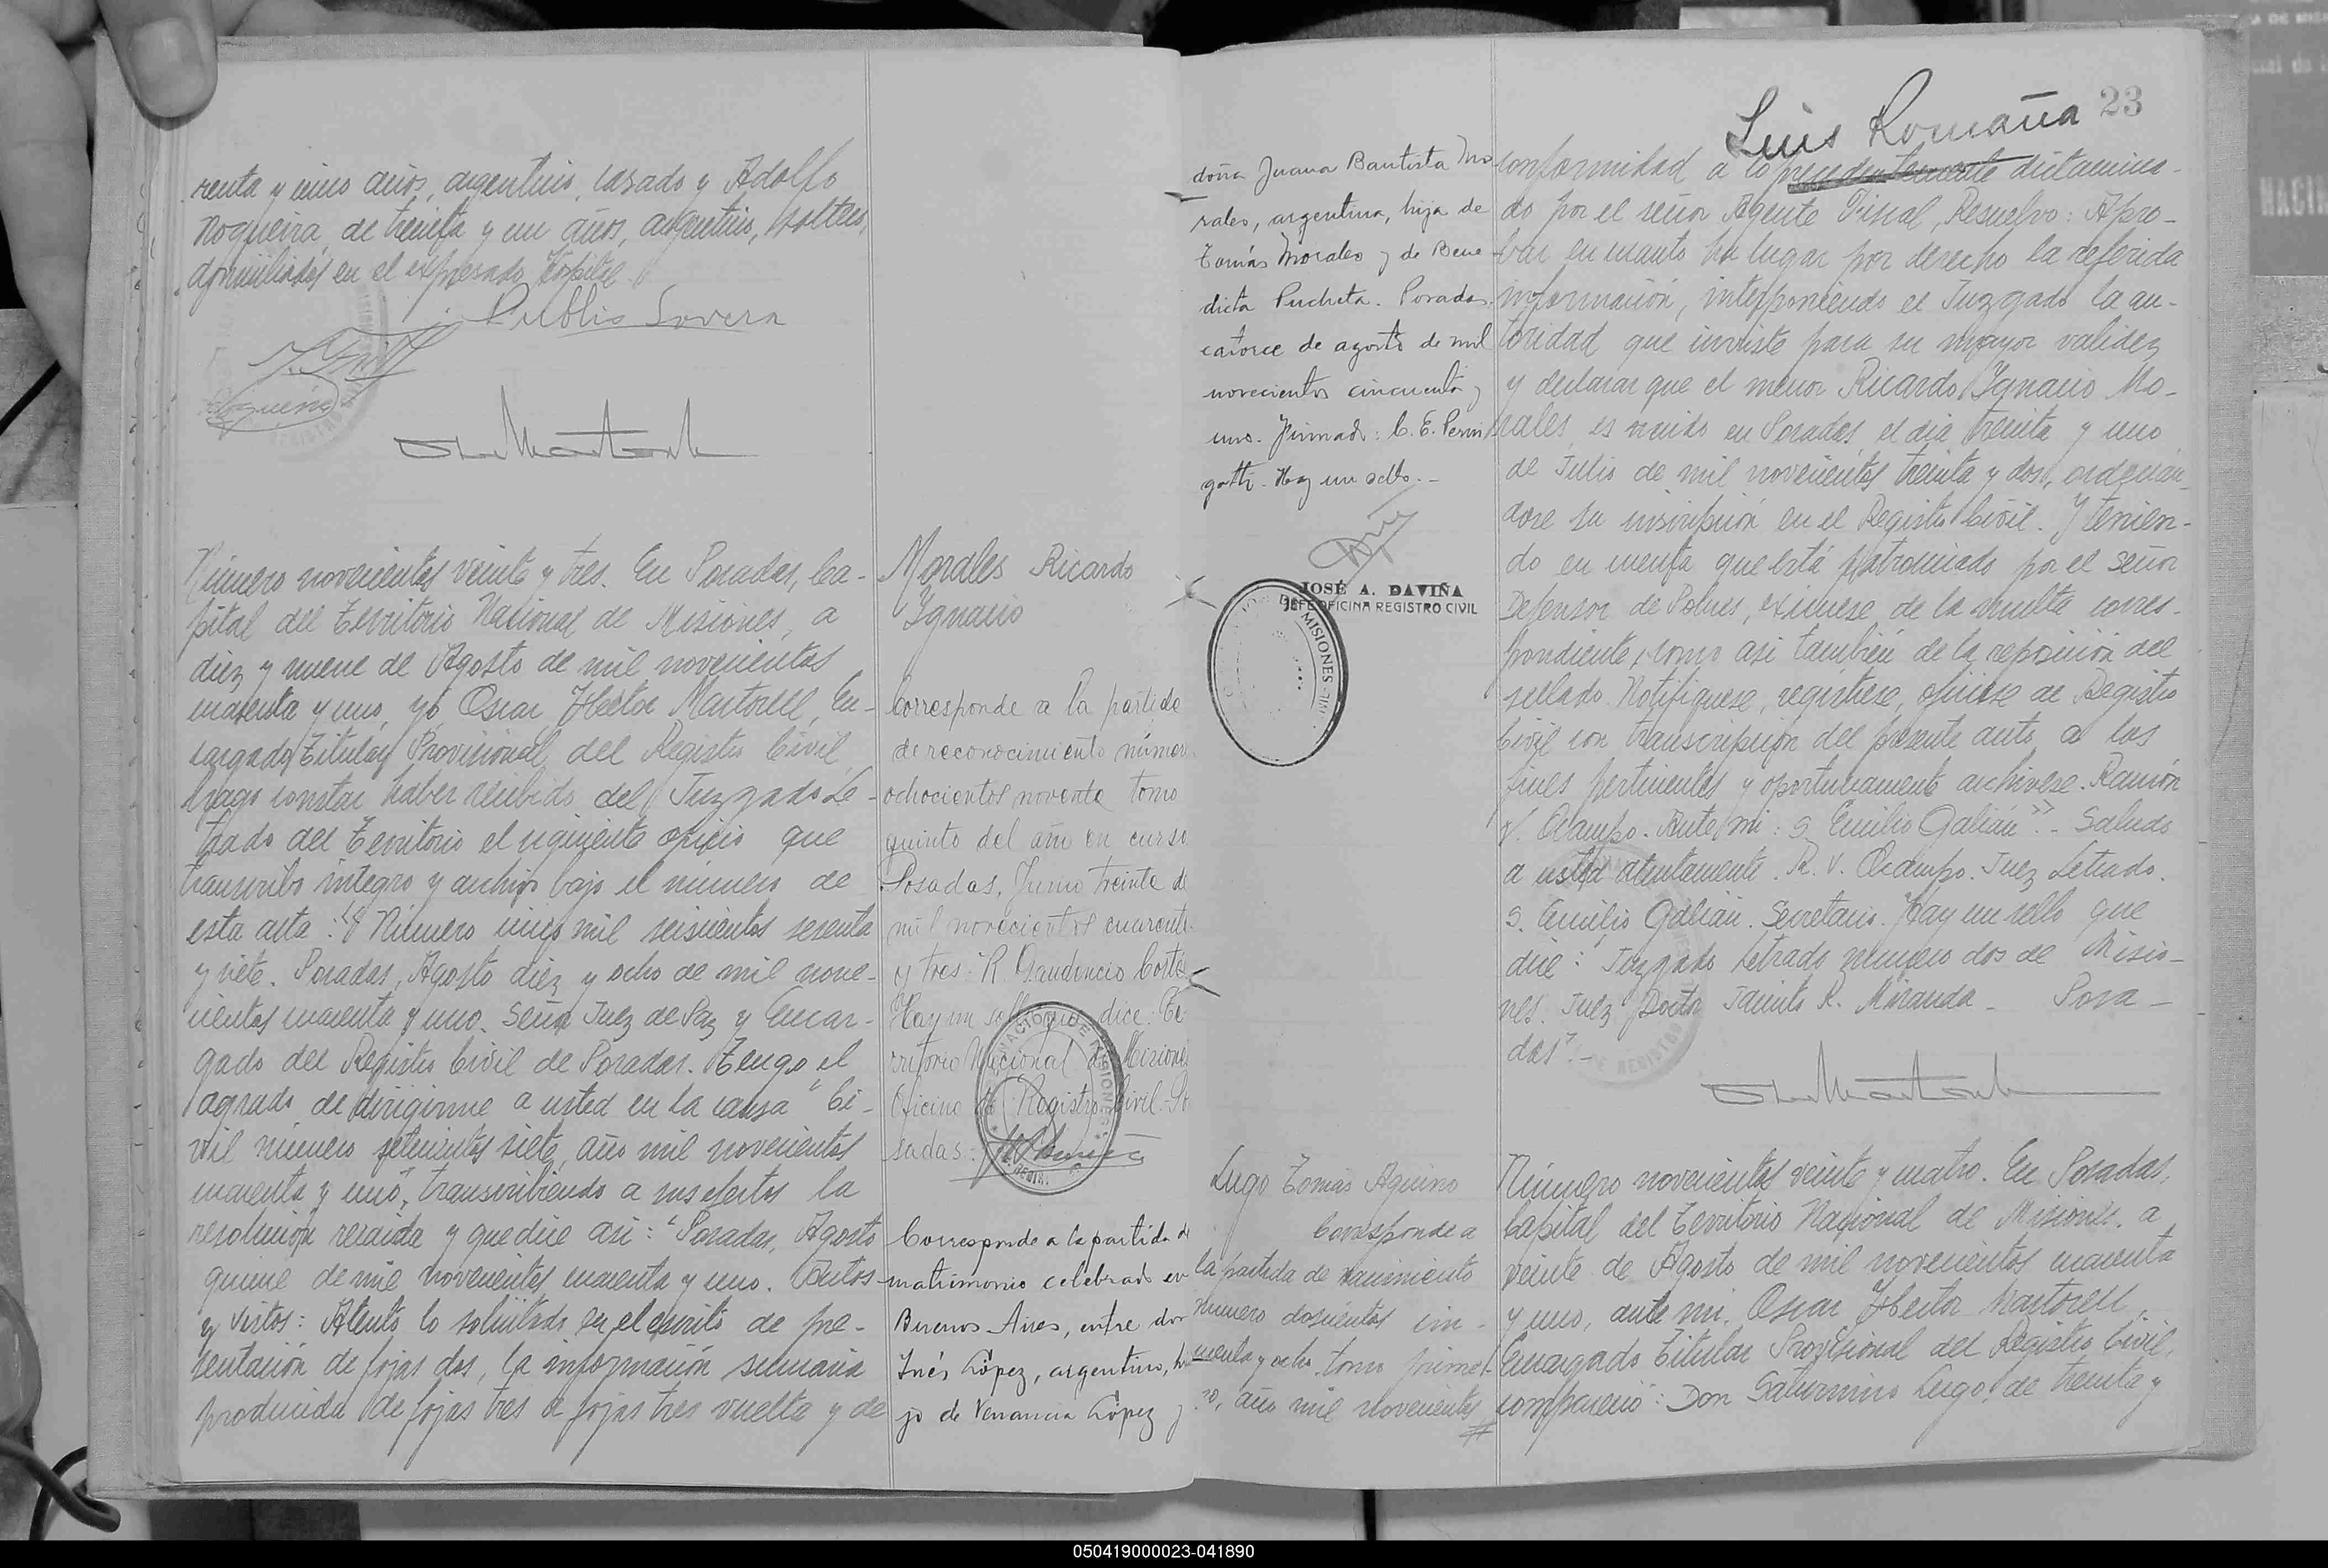 renta y cinco años, argentino, casado y Adolfo
Nogueira, de treinta y un años, argentino, soltero,
domiciliados en el expresado Hospital.
Publio Lovera
Número novecientos veinte y tres. En Posadas, Ca-
pital del Territorio Nacional de Misiones, a
diez y nueve de Agosto de mil novecientos
cuarenta y uno, yo, Oscar Héctor Martorell, En-
cargado Titular Provisional del Registro Civil,
hago constar haber recibido del Juzgado Le-
trado del Territorio el siguiente oficio que
transcribo íntegro y archivo bajo el número de
esta acta: "Número cinco mil seiscientos sesenta
y siete. Posadas, Agosto diez y ocho de mil nove-
cientos cuarenta y uno. Señor Juez de Paz y Encar-
gado del Registro Civil de Posadas. Tengo el
agrado de dirigirme a usted en la causa "Ci-
vil número setecientos siete, año mil novecientos
cuarenta y uno", transcribiendo a sus efectos la
resolución recaida y que dice así: "Posadas, Agosto
quince de mil novecientos cuarenta y uno. Autos
y Vistos: Atento lo solicitado en el escrito de pre-
sentación de fojas dos, la información sumaria
producida de fojas tres a fojas tres vuelta y de
Morales Ricardo
Ignacio
Corresponde a la partida
de reconocimiento número
ochocientos noventa tomo
quinto del año en curso
Posadas, Junio treinta de
mil novecientos cuarenta
y tres: R. Gaudencio Corte
Hay un sello que dice: Te-
rritorio Nacional de Misiones
Oficina de Registro Civil - Po
sadas:
Corresponde a la partida de
matrimonio celebrado en
Buenos Aires, entre don
Inés López, argentino, hi
jo de Venancia López y
doña Juana Bautista Mo
rales, argentina, hija de
Tomás Morales y de Bene
dicta Pucheta. Posadas
catorce de agosto de mil
novecientos cincuenta y
uno. Firmado: C. E. Perin
gotti. Hay un sello.-
JOSÉ A. DAVIÑA
JEFE OFICINA REGISTRO CIVIL
MISIONES
Lugo Tomás Aquino
Corresponde a
la partida de nacimiento
número doscientos cin-
cuenta y ocho, tomo prime-
ro, año mil novecientos
#
Luis Romaña 23
conformidad a lo precedentemente dictamina-
do por el señor Agente Fiscal, Resuelvo: Apro-
bar en cuanto ha lugar por derecho la referida
información, interponiendo el Juzgado la au-
toridad que inviste para su mayor validez
y declarar que el menor Ricardo Ignacio Mo-
rales, es nacido en Posadas el día treinta y uno
de Julio de mil novecientos treinta y dos, ordenán-
dose su inscripción en el Registro Civil. Y tenien-
do en cuenta que está patrocinado por el Señor
Defensor de Pobres, exímese de la multa corres-
pondiente, como así también de la reposición del
sellado. Notifíquese, regístrese, ofíciese al Registro
Civil con transcripción del presente auto a los
fines pertinentes y oportunamente archívese. Ramón
V. Ocampo. Ante mi: S. Emilio Galián".- Saludo
a usted atentamente. R. V. Ocampo. Juez Letrado.
S. Emilio Galián. Secretario. Hay un sello que
dice: "Juzgado Letrado número dos de Misio-
nes. Juez Doctor Jacinto R. Miranda - Posa-
das".-
Número novecientos veinte y cuatro. En Posadas,
Capital del Territorio Nacional de Misiones, a
veinte de Agosto de mil novecientos cuarenta
y uno, ante mi, Oscar Héctor Martorell,
Encargado Titular Provisional del Registro Civil,
compareció: Don Saturnino Lugo, de treinta y
050419000023-041890